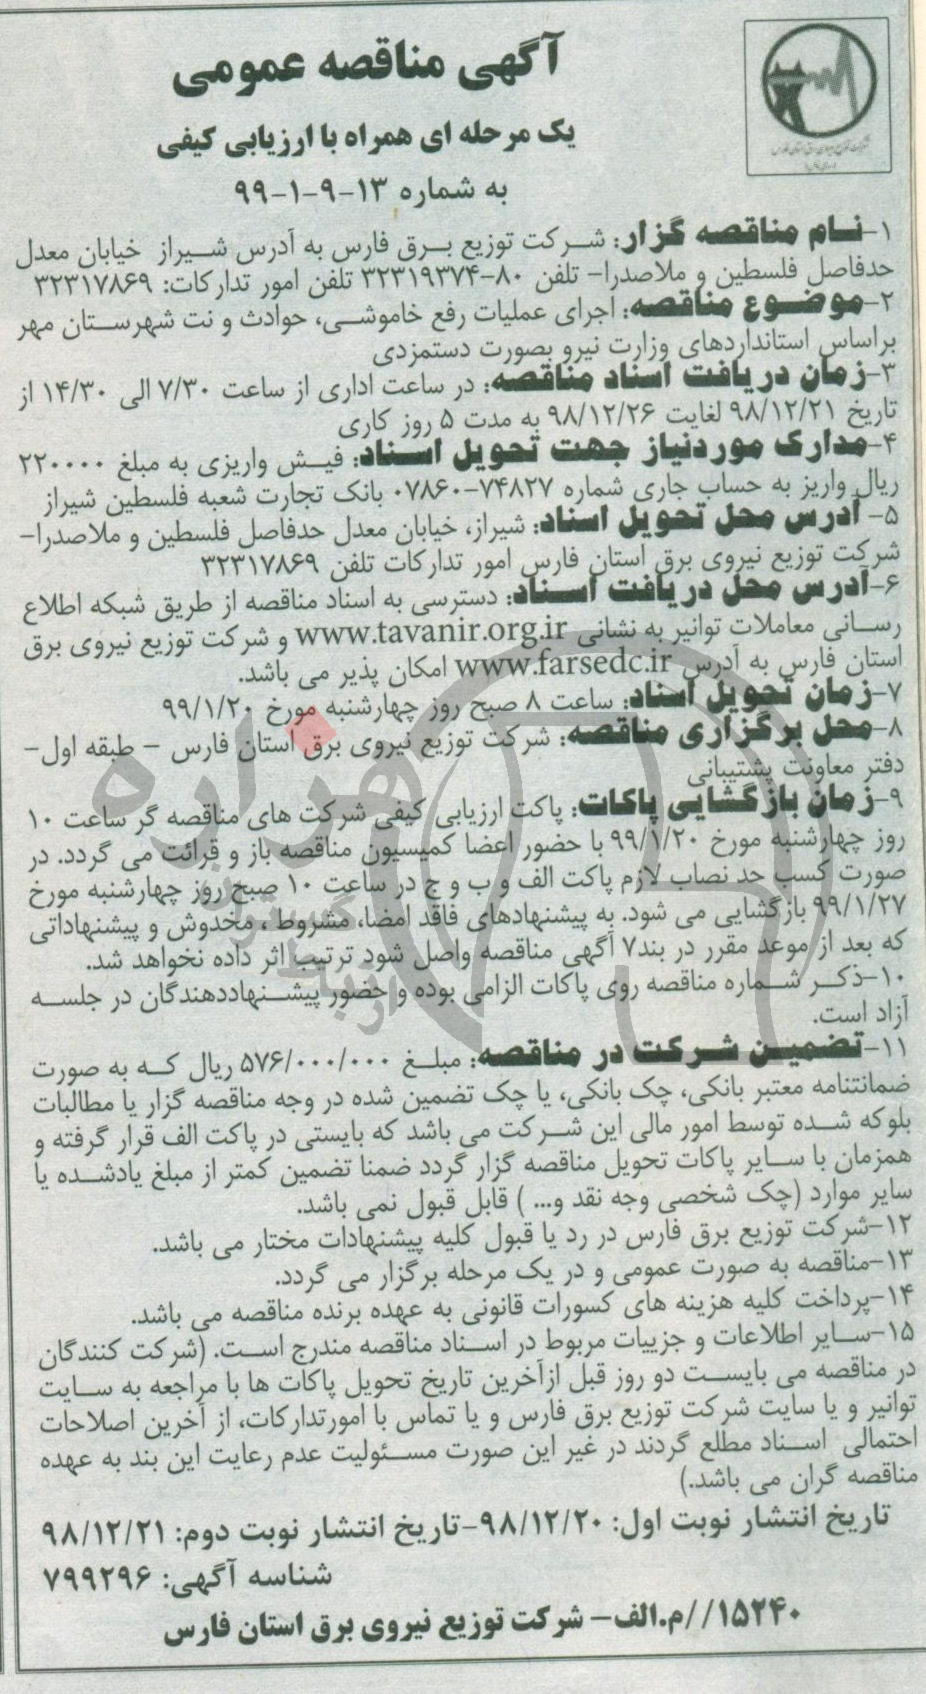 آگهی مناقصه عمومی
یک مرحله ای همراه با ارزیابی کیفی
به شماره ۱۳-۹-۱-۹۹
۱-نام مناقصه گزار: شرکت توزیع برق فارس به آدرس شیراز خیابان معدل
حدفاصل فلسطین و ملاصدرا- تلفن ۸۰-۳۲۳۱۹۳۷۴ تلفن امور تدارکات: ۳۲۳۱۷۸۶۹
۲-موضوع مناقصه: اجرای عملیات رفع خاموشی، حوادث و نت شهرستان مهر
براساس استانداردهای وزارت نیرو بصورت دستمزدی
۳-زمان دریافت اسناد مناقصه: در ساعت اداری از ساعت ۷/۳۰ الی ۱۴/۳۰ از
تاریخ ۹۸/۱۲/۲۱ لغایت ۹۸/۱۲/۲۶ به مدت ۵ روز کاری
۴-مدارک موردنیاز جهت تحویل اسناد: فیش واریزی به مبلغ ۲۲۰۰۰۰
ریال واریز به حساب جاری شماره ۷۴۸۲۷-۰۷۸۶۰ بانک تجارت شعبه فلسطین شیراز
۵- آدرس محل تحویل اسناد: شیراز، خیابان معدل حدفاصل فلسطین و ملاصدرا-
شرکت توزیع نیروی برق استان فارس امور تدارکات تلفن ۳۲۳۱۷۸۶۹
۶-آدرس محل دریافت اسناد: دسترسی به اسناد مناقصه از طریق شبکه اطلاع
رسانی معاملات توانیر به نشانی www.tavanir.org.ir و شرکت توزیع نیروی برق
استان فارس به آدرس www.farsedc.ir امکان پذیر می باشد.
۷-زمان تحویل اسناد: ساعت ۸ صبح روز چهارشنبه مورخ ۹۹/۱/۲۰
۸-محل برگزاری مناقصه: شرکت توزیع نیروی برق استان فارس - طبقه اول-
دفتر معاونت پشتیبانی
۹-زمان بازگشایی پاکات: پاکت ارزیابی کیفی شرکت های مناقصه گر ساعت ۱۰
روز چهارشنبه مورخ ۹۹/۱/۲۰ با حضور اعضا کمیسیون مناقصه باز و قرائت می گردد. در
صورت کسب حد نصاب لازم پاکت الف و ب و ج در ساعت ۱۰ صبح روز چهارشنبه مورخ
۹۹/۱/۲۷ بازگشایی می شود. به پیشنهادهای فاقد امضا، مشروط ، مخدوش و پیشنهاداتی
که بعد از موعد مقرر در بند۷ آگهی مناقصه واصل شود ترتیب اثر داده نخواهد شد.
۱۰-ذکر شماره مناقصه روی پاکات الزامی بوده و حضور پیشنهاددهندگان در جلسه
آزاد است.
۱۱-تضمین شرکت در مناقصه: مبلغ ۵۷۶/۰۰۰/۰۰۰ ریال که به صورت
ضمانتنامه معتبر بانکی، چک بانکی، یا چک تضمین شده در وجه مناقصه گزار یا مطالبات
بلوکه شده توسط امور مالی این شرکت می باشد که بایستی در پاکت الف قرار گرفته و
همزمان با سایر پاکات تحویل مناقصه گزار گردد ضمنا تضمین کمتر از مبلغ یادشده یا
سایر موارد (چک شخصی وجه نقد و... ) قابل قبول نمی باشد.
۱۲-شرکت توزیع برق فارس در رد یا قبول کلیه پیشنهادات مختار می باشد.
۱۳-مناقصه به صورت عمومی و در یک مرحله برگزار می گردد.
۱۴-پرداخت کلیه هزینه های کسورات قانونی به عهده برنده مناقصه می باشد.
۱۵-سایر اطلاعات و جزییات مربوط در اسناد مناقصه مندرج است. (شرکت کنندگان
در مناقصه می بایست دو روز قبل ازآخرین تاریخ تحویل پاکات ها با مراجعه به سایت
توانیر و یا سایت شرکت توزیع برق فارس و یا تماس با امورتدارکات، از آخرین اصلاحات
احتمالی اسناد مطلع گردند در غیر این صورت مسئولیت عدم رعایت این بند به عهده
مناقصه گران می باشد.)
تاریخ انتشار نوبت اول: ۹۸/۱۲/۲۰-تاریخ انتشار نوبت دوم: ۹۸/۱۲/۲۱
شناسه آگهی: ۷۹۹۲۹۶
۱۵۲۴۰//م.الف- شرکت توزیع نیروی برق استان فارس